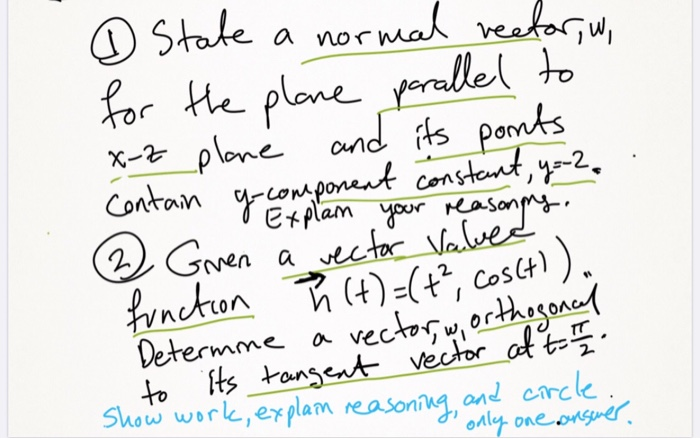 ① State a normal vector, w,
for the plane parallel to
x-z plane and its points
contain y-component constant, y=-2.
Explain your reasoning.
② Given a vector valued
function h⃗(t)=(t², cos(t)).
Determine a vector, w, orthogonal
to its tangent vector at t=π/2.
Show work, explain reasoning, and circle
only one answer.